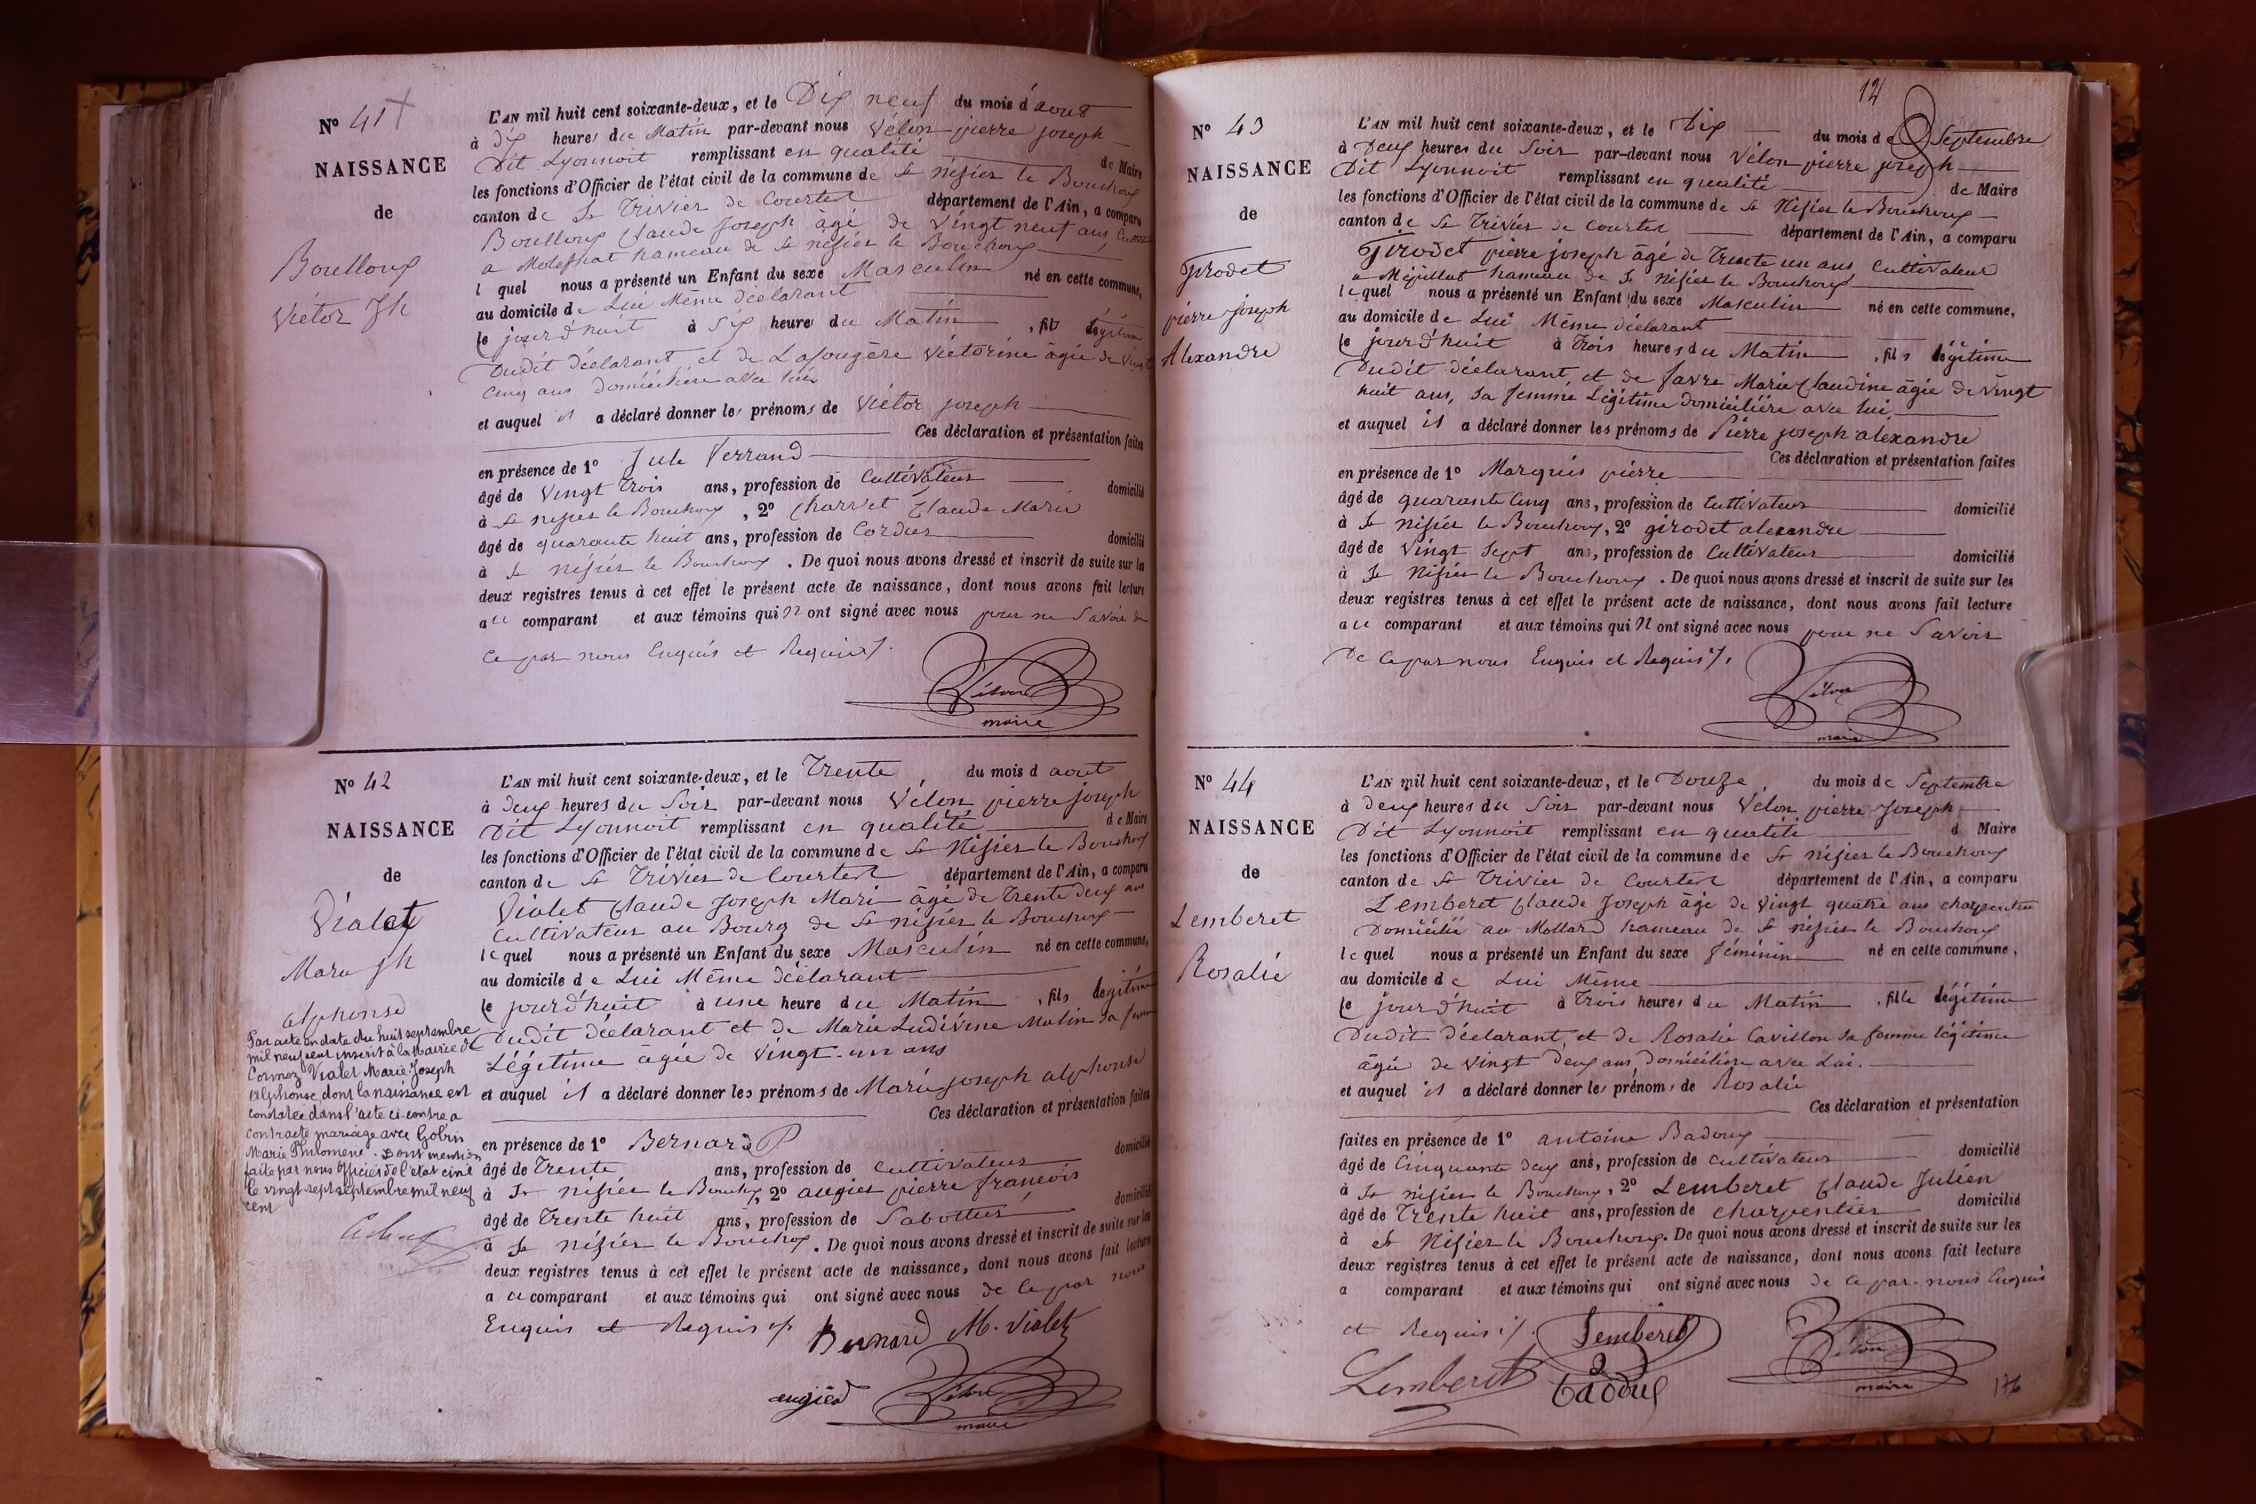 N° 41
NAISSANCE
de
Boulloux
Victor Jh
L'AN mil huit cent soixante-deux, et le Dix neuf du mois d'aout
à dix heures du Matin par-devant nous Vélon pierre joseph
Dit Lyonnoit remplissant en qualité de Maire
les fonctions d'Officier de l'état civil de la commune de St Nizier le Bouchoux
canton de St Trivier de Courtes département de l'Ain, a comparu
Boulloux Claude Joseph âgé de vingt neuf ans,
a hameau de St nizier le Bouchoux
l quel nous a présenté un Enfant du sexe Masculin né en cette commune,
au domicile de Lui Même déclarant
le jourd'huit à Six heures du Matin, fils légitime
Dudit déclarant, et de Lafougère Victorine âgée de vingt
cinq ans domiciliée avec lui
et auquel il a déclaré donner les prénoms de Victor joseph
Ces déclaration et présentation faites
en présence de 1° Jule Ferrand
âgé de vingt trois ans, profession de Cultivateur domicilié
à St nizier le Bouchoux, 2° Charvet Claude Marie
âgé de quarante huit ans, profession de Cordier domicilié
à St nizier le Bouchoux. De quoi nous avons dressé et inscrit de suite sur la
deux registres tenus à cet effet le présent acte de naissance, dont nous avons fait lecture
au comparant et aux témoins qui n ont signé avec nous pour ne Savoir de
ce par nous Enquis et Requis ./.
Vélon
maire
N° 42
NAISSANCE
de
Vialet
Marie Jh
alphonse
Par acte en date du huit septembre
mil neuf cent inscrit à la Mairie de
Cormoz Vialet Marie Joseph
Alphonse dont la naissance est
constatée dans l'acte ci-contre a
contracté mariage avec Gobin
Marie Philomène. Dont mention
faite par nous officier de l'état civil
le vingt sept septembre mil neuf
cent
L'AN mil huit cent soixante-deux, et le Trente du mois d aout
à deux heures du Soir par-devant nous Vélon pierre joseph
Dit Lyonnoit remplissant en qualité de Maire
les fonctions d'Officier de l'état civil de la commune de St Nizier le Bouchoux
canton de St Trivier de Courtes département de l'Ain, a comparu
Vialet Claude Joseph Marie âgé de Trente deux ans
Cultivateur au Bourg de St nizier le Bouchoux
lequel nous a présenté un Enfant du sexe Masculin né en cette commune,
au domicile de Lui Même déclarant
le jourd'huit à une heure du Matin, fils légitime
Dudit déclarant et de Marie Ludivine Matin Sa femme
Légitime âgée de vingt-un ans
et auquel il a déclaré donner les prénoms de Marie joseph alphonse
Ces déclaration et présentation faites
en présence de 1° Bernard P
âgé de Trente ans, profession de cultivateur domicilié
à St nizier le Bouchoux, 2° augier pierre françois
âgé de Trente huit ans, profession de Sabottier domicilié
à St nizier le Bouchoux. De quoi nous avons dressé et inscrit de suite sur les
deux registres tenus à cet effet le présent acte de naissance, dont nous avons fait lecture
au comparant et aux témoins qui ont signé avec nous de ce par nous
Enquis et Requis ./. Bernard M. Vialet
augier Vélon
maire
12
N° 43
NAISSANCE
de
Girodet
pierre joseph
Alexandre
L'AN mil huit cent soixante-deux, et le Dix du mois de Septembre
à Deux heures du Soir par-devant nous Vélon pierre joseph
Dit Lyonnoit remplissant en qualité de Maire
les fonctions d'Officier de l'état civil de la commune de St Nizier le Bouchoux
canton de St Trivier de Courtes département de l'Ain, a comparu
Girodet pierre joseph âgé de Trente un ans Cultivateur
a hameau de St Nizier le Bouchoux
lequel nous a présenté un Enfant du sexe Masculin né en cette commune,
au domicile de Lui Même déclarant
le jourd'huit à Trois heures du Matin, fils légitime
Dudit déclarant, et de favre Marie Claudine âgée de vingt
huit ans, Sa femme Légitime domiciliée avec lui
et auquel il a déclaré donner les prénoms de Pierre joseph alexandre
Ces déclaration et présentation faites
en présence de 1° Marquis pierre
âgé de quarante Cinq ans, profession de Cultivateur domicilié
à St Nizier le Bouchoux, 2° girodet alexandre
âgé de vingt Sept ans, profession de Cultivateur domicilié
à St Nizier le Bouchoux. De quoi nous avons dressé et inscrit de suite sur les
deux registres tenus à cet effet le présent acte de naissance, dont nous avons fait lecture
au comparant et aux témoins qui n ont signé avec nous pour ne Savoir
De ce par nous Enquis et Requis ./.
Vélon
maire
N° 44
NAISSANCE
de
Lemberet
Rosalie
L'AN mil huit cent soixante-deux, et le Douze du mois de Septembre
à deux heures du Soir par-devant nous Vélon pierre Joseph
Dit Lyonnoit remplissant en qualité d Maire
les fonctions d'Officier de l'état civil de la commune de St nizier le Bouchoux
canton de St Trivier de Courtes département de l'Ain, a comparu
Lemberet Claude Joseph âgé de vingt quatre ans charpentier
Domicilié au Mollard hameau de St nizier le Bouchoux
lequel nous a présenté un Enfant du sexe féminin né en cette commune,
au domicile de Lui Même
le jourd'huit à Trois heures du Matin, fille légitime
Dudit déclarant, et de Rosalie Cavillon Sa femme légitime
âgée de vingt deux ans, Domiciliée avec Lui.
et auquel il a déclaré donner les prénoms de Rosalie
Ces déclaration et présentation
faites en présence de 1° antoine Badoux
âgé de Cinquante deux ans, profession de cultivateur domicilié
à St nizier le Bouchoux, 2° Lemberet Claude Julien
âgé de Trente huit ans, profession de charpentier domicilié
à St Nizier le Bouchoux. De quoi nous avons dressé et inscrit de suite sur les
deux registres tenus à cet effet le présent acte de naissance, dont nous avons fait lecture
a comparant et aux témoins qui ont signé avec nous de ce par nous Enquis
et Requis ./. Lemberet Vélon
Lemberet Badoux maire
176